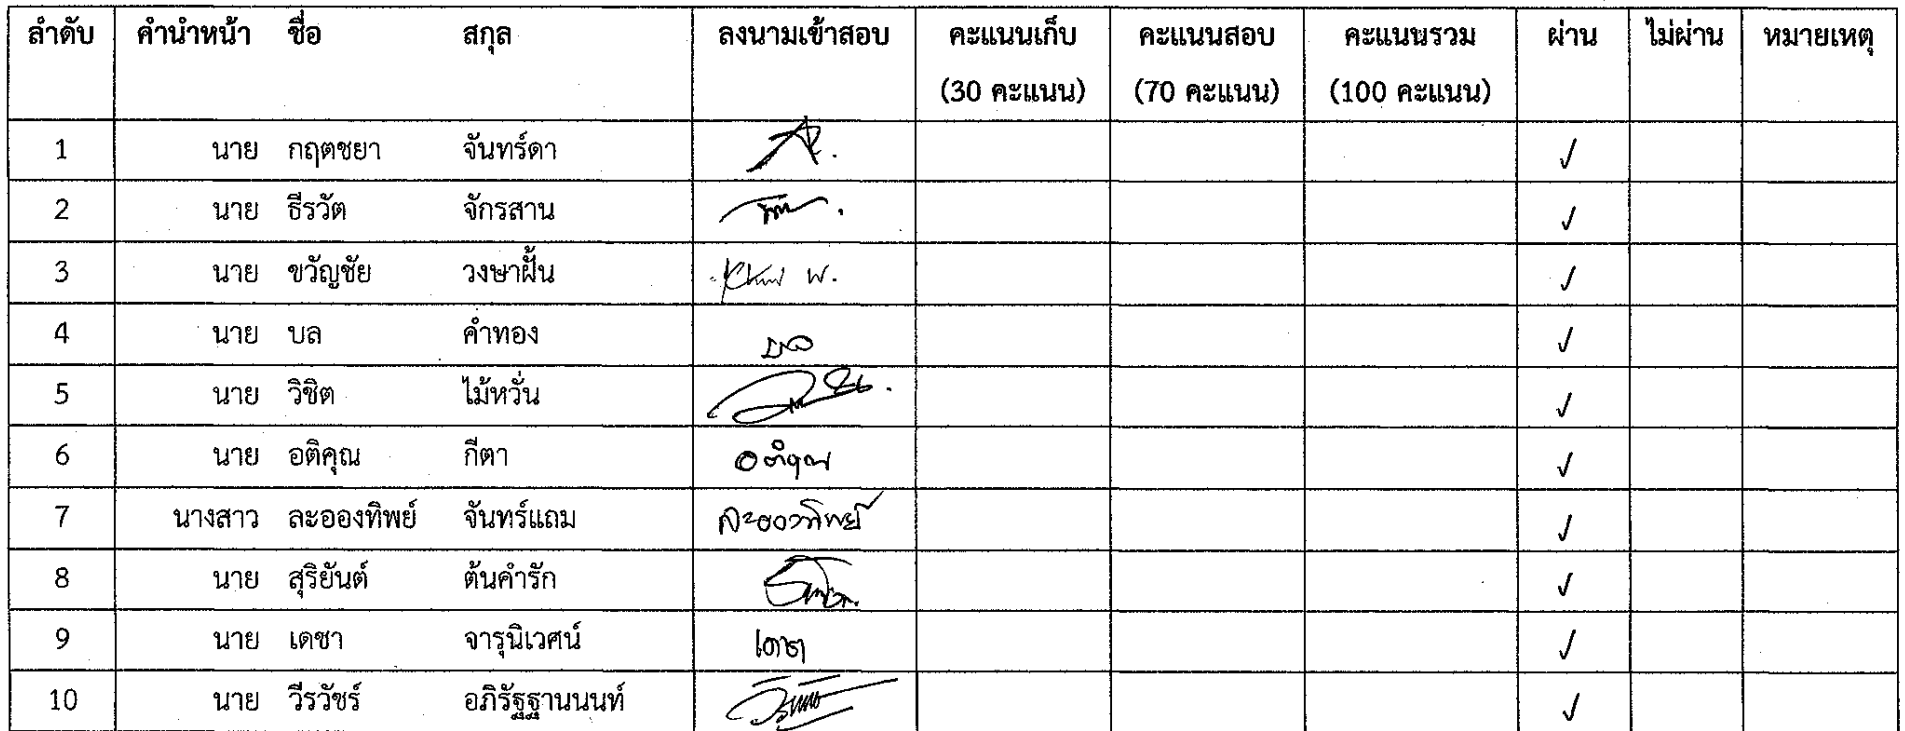 ลำดับ คำนำหน้า ชื่อ สกุล ลงนามเข้าสอบ คะแนนเก็บ คะแนนสอบ คะแนนรวม ผ่าน ไม่ผ่าน หมายเหตุ
(30 คะแนน) (70 คะแนน) (100 คะแนน)
1 นาย กฤตชยา จันทร์ดา ✓
2 นาย ธีรวัต จักรสาน ✓
3 นาย ขวัญชัย วงษาฝั้น ✓
4 นาย บล คำทอง บล ✓
5 นาย วิชิต ไม้หวั่น ✓
6 นาย อติคุณ กีตา อติคุณ ✓
7 นางสาว ละอองทิพย์ จันทร์แถม ละอองทิพย์ ✓
8 นาย สุริยันต์ ต้นคำรัก ✓
9 นาย เดชา จารุนิเวศน์ เดชา ✓
10 นาย วีรวัชร์ อภิรัฐฐานนนท์ ✓